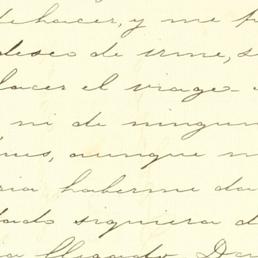 dehacer, y me
deseo de irme, s
hacer el viage
ni de ningun
nes, aunque m
ria haberme da
tado siquiera d
a llegado Dar